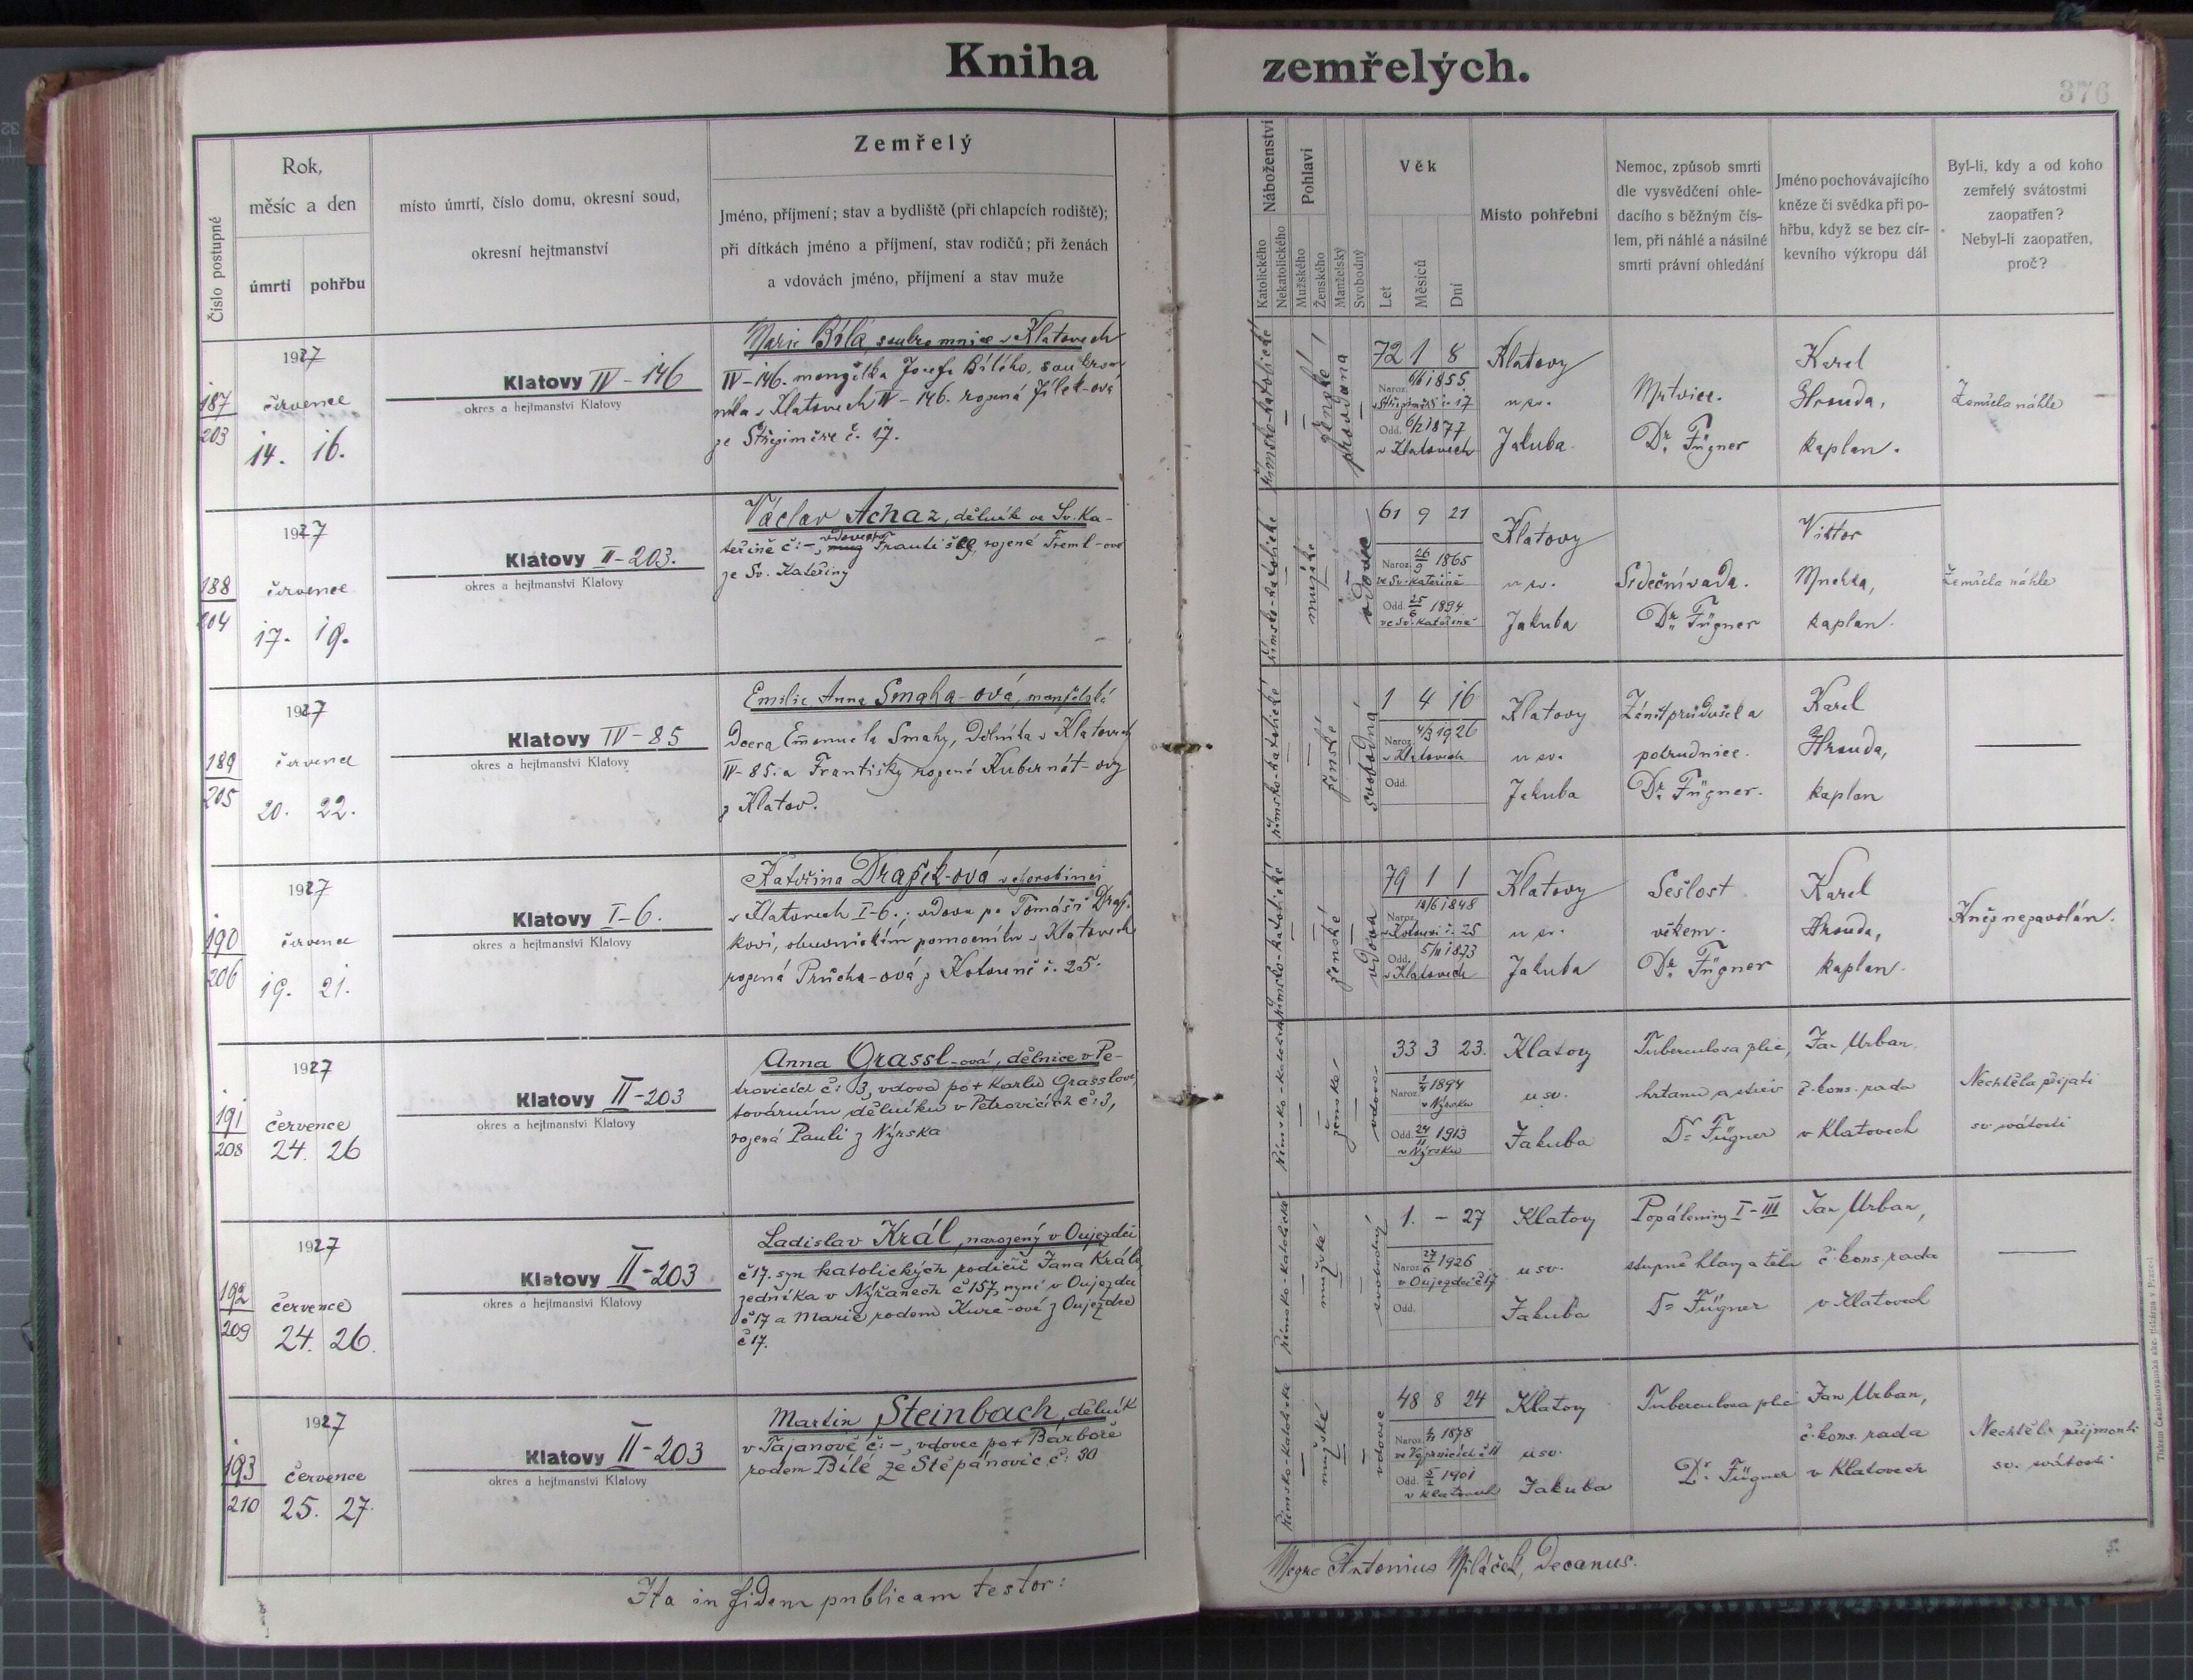 Kniha zemřelých.
376
Číslo postupné
Rok,
měsíc a den
úmrtí
pohřbu
místo úmrtí, číslo domu, okresní soud,
okresní hejtmanství
Zemřelý
Jméno, příjmení; stav a bydliště (při chlapcích rodiště);
při dítkách jméno a příjmení, stav rodičů; při ženách
a vdovách jméno, příjmení a stav muže
Náboženství
Katolického
Nekatolického
Pohlaví
Mužského
Ženského
Manželský
Svobodný
Věk
Let
Měsíců
Dní
Místo pohřební
Nemoc, způsob smrti
dle vysvědčení ohle-
dacího s běžným čís-
lem, při náhlé a násilné
smrti právní ohledání
Jméno pochovávajícího
kněze či svědka při po-
hřbu, když se bez cír-
kevního výkropu dál
Byl-li, kdy a od koho
zemřelý svátostmi
zaopatřen?
Nebyl-li zaopatřen,
proč?
187
203
1927
července
14. 16.
Klatovy IV-146
okres a hejtmanství Klatovy
Marie Bílá, soukromnice v Klatovech
IV-146. manželka Josefa Bílého, soukrom-
níka v Klatovech IV-146. rozená Jílek-ová
ze Střeziměře č. 17.
římsko-katolické
ženské
provdaná
72 1 8
Naroz. 6/6 1855
v Střeziměři č. 17
Odd. 6/2 1877
v Klatovech
Klatovy
u sv.
Jakuba
Mrtvice.
Dr. Fügner
Karel
Hrouda,
kaplan.
Zemřela náhle
188
204
1927
července
17. 19.
Klatovy II-203.
okres a hejtmanství Klatovy
Václav Achaz, dělník ve Sv. Ka-
teřině č: -, vdovec Františ rozené Treml-ové
ze Sv. Kateřiny
římsko-katolické
mužské
vdovec
61 9 21
Naroz. 26/9 1865
ve Sv. Kateřině
Odd. 25/6 1894
ve Sv. Kateřině
Klatovy
u sv.
Jakuba
Srdeční vada.
Dr. Fügner
Viktor
kaplan.
Zemřela náhle
189
205
1927
července
20. 22.
Klatovy IV-85
okres a hejtmanství Klatovy
Emilie Anna Smaha-ová, manželská
dcera Emanuela Smahy, dělníka v Klatovech
IV-85. a Františky rozené Kubernát-ovy
z Klatov.
římsko-katolické
ženské
svobodná
1 4 16
Naroz. 4/3 1926
v Klatovech
Odd.
Klatovy
u sv.
Jakuba
Zánět průdušek a
pobrudnice.
Dr. Fügner.
Karel
Hrouda,
kaplan
190
206
1927
července
19. 21.
Klatovy I-6.
okres a hejtmanství Klatovy
Kateřina Dražek-ová v chorobinci
v Klatovech I-6.; vdova po Tomáši Draž-
kovi, obuvnickém pomocníku v Klatovech
rozená Průcha-ová z Kotouně č. 25.
římsko-katolické
ženské
vdova
79 1 1
Naroz. 18/6 1848
v Kotouni č. 25
Odd. 5/11 1873
v Klatovech
Klatovy
u sv.
Jakuba
Sešlost
věkem.
Dr. Fügner
Karel
Hrouda,
kaplan.
Kněz nezavolán.
191
208
1927
července
24. 26
Klatovy II-203
okres a hejtmanství Klatovy
Anna Grassl-ová, dělnice v Pe-
trovicích č: 3, vdova po + Karlu Grasslovi,
továrním dělníku v Petrovicích č: 3,
rozená Pauli z Nýrska
římsko-katolické
ženské
vdova
33 3 23.
Naroz. 1/4 1894
v Nýrsku
Odd. 24/11 1913
v Nýrsku
Klatovy
u sv.
Jakuba
Tuberculosa plic,
hrtanu a střev
Dr. Fügner
Jan Urban
č. kons. rada
v Klatovech
Nechtěla přijati
sv. svátosti
192
209
1927
července
24. 26.
Klatovy II-203
okres a hejtmanství Klatovy
Ladislav Král, narozený v Oujezdci
č 17. syn katolických rodičů Jana Krále,
zedníka v Nýřanech č 157, nyní v Oujezdci
č 17 a Marie rodem Kurc-ové z Oujezdce
č 17.
římsko-katolické
mužské
svobodný
1. - 27
Naroz. 27/6 1926
v Oujezdci č 17
Odd.
Klatovy
u sv.
Jakuba
Popáleniny I-III
stupně hlavy a těla
Dr. Fügner
Jan Urban,
č. kons. rada
v Klatovech
193
210
1927
července
25. 27.
Klatovy II-203
okres a hejtmanství Klatovy
Martin Steinbach, dělník
v Tajanově č: -, vdovec po + Barboře
rodem Bílé ze Štěpánovic č: 30
římsko-katolické
mužské
vdovec
48 8 24
Naroz. 1/11 1878
Odd. 5/2 1901
v Klatovech
Klatovy
u sv.
Jakuba
Tuberculosa plic
Dr. Fügner
Jan Urban,
č. kons. rada
v Klatovech
Nechtěl přijmouti
sv. svátosti
Ita in fidem publicam testor:
Antonius Decanus.